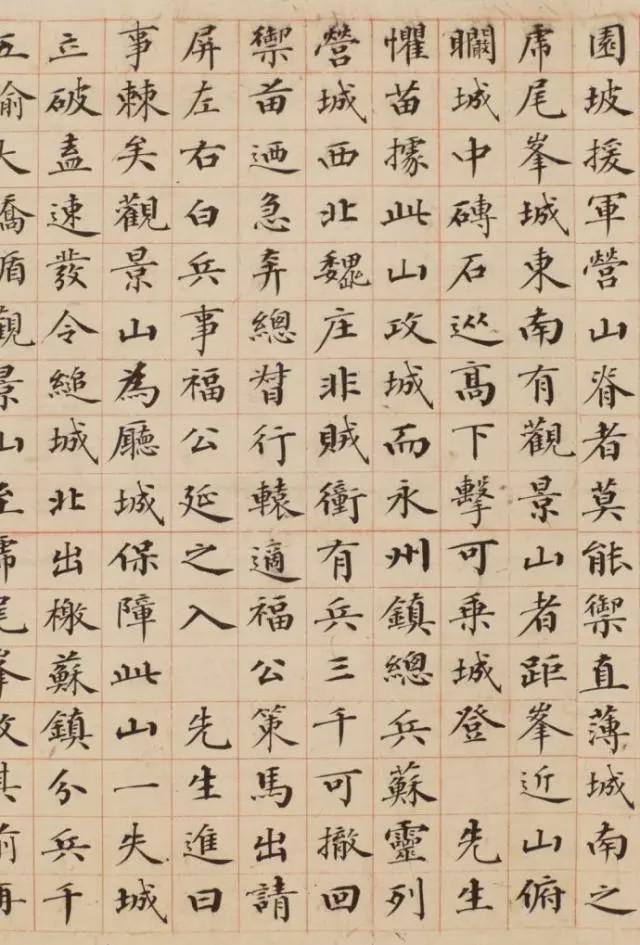 園坡援軍營山脊者莫能禦直薄城南之
虎尾峯城東南有觀景山者距峯近山俯
矙城中磚石巡髙下擊可乗城登 先生
懼苗據此山攻城而永州鎮總兵蘇靈列
營城西北魏庄非賊衝有兵三千可撤回
禦苗迺急弃總督行轅適福公策馬出請
屏左右白兵事福公延之入 先生進曰
事棘矣觀景山為廳城保障此山一失城
立破盍速發令縋城北出檄蘇鎮分兵千
五大觀景山至虎尾峯攻其前再